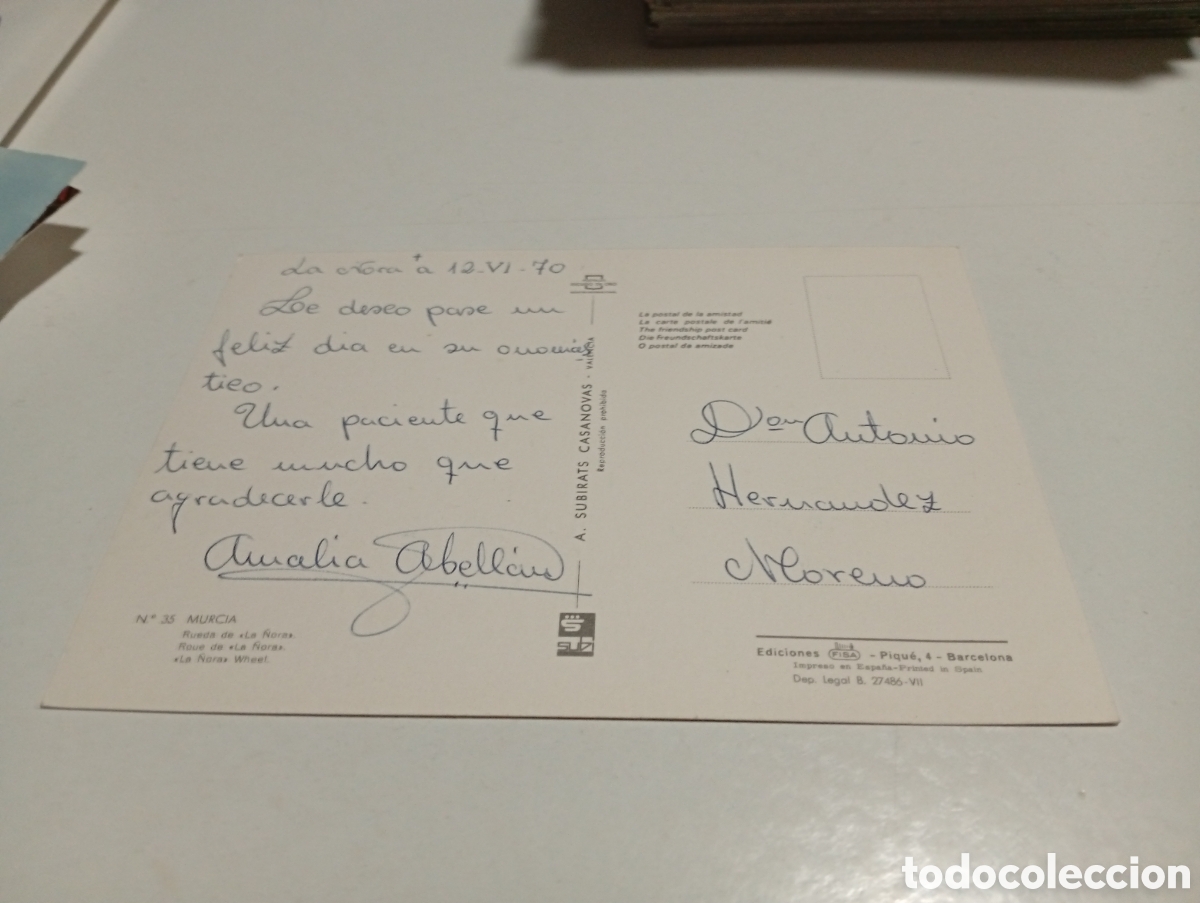 La Ñora + a 12-VI-70
Le deseo pase un
feliz dia en su onomás
tico.
Una paciente que
tiene mucho que
agradecerle.
Amalia Abellán
Nº 35 MURCIA
Rueda de «La Ñora».
Roue de «La Ñora».
«La Ñora» Wheel.
A. SUBIRATS CASANOVAS - VALENCIA
Reproducción prohibida
SUBI
La postal de la amistad
La carte postale de l'amitié
The friendship post card
Die Freundschaftskarte
O postal da amizade
Don Antonio
Hernandez
Moreno
Ediciones FISA - Piqué, 4 - Barcelona
Impreso en España-Printed in Spain
Dep. Legal B. 27486-VII
todocoleccion